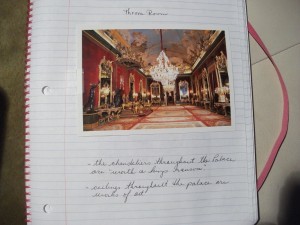 Throne Room
- the chandeliers throughout the Palace
are worth a huge fortune
- ceilings throughout the palace are
works of art